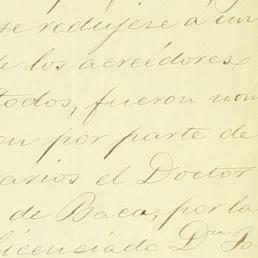 se redujese a un
de los acreédores
todos, fueron nom
on por parte de
arios el Doctor
de Baca, por la
licenciado Dⁿ Jo